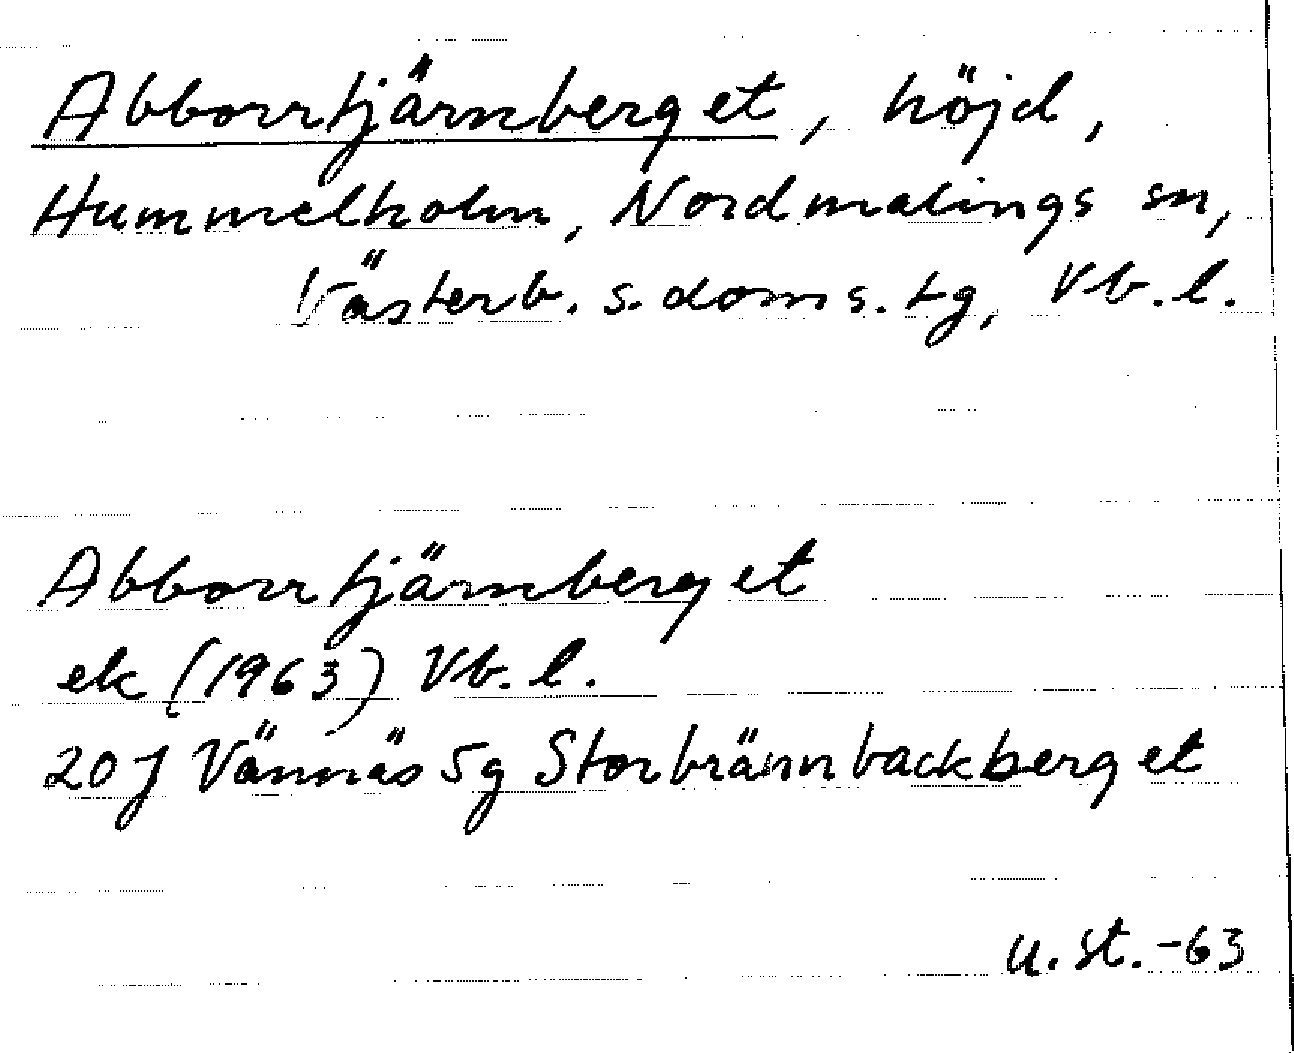 Abborrtjärnberget, höjd,
Hummelholm, Nordmalings sn,
Västerb. s. doms. tg, Vb. l.
Abborrtjärnberget
ek (1963) Vb. l.
20 J Vännäs 5g Storbrännbackberget
u. st. -63